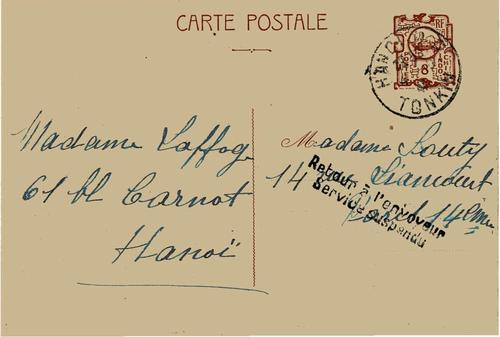 CARTE POSTALE
RF
6
HANOI
TONKIN
Madame Laffoge
61 bd Carnot
Hanoï
Madame Douty
14 Liancourt
14ème
Retour à l'envoyeur
Service suspendu